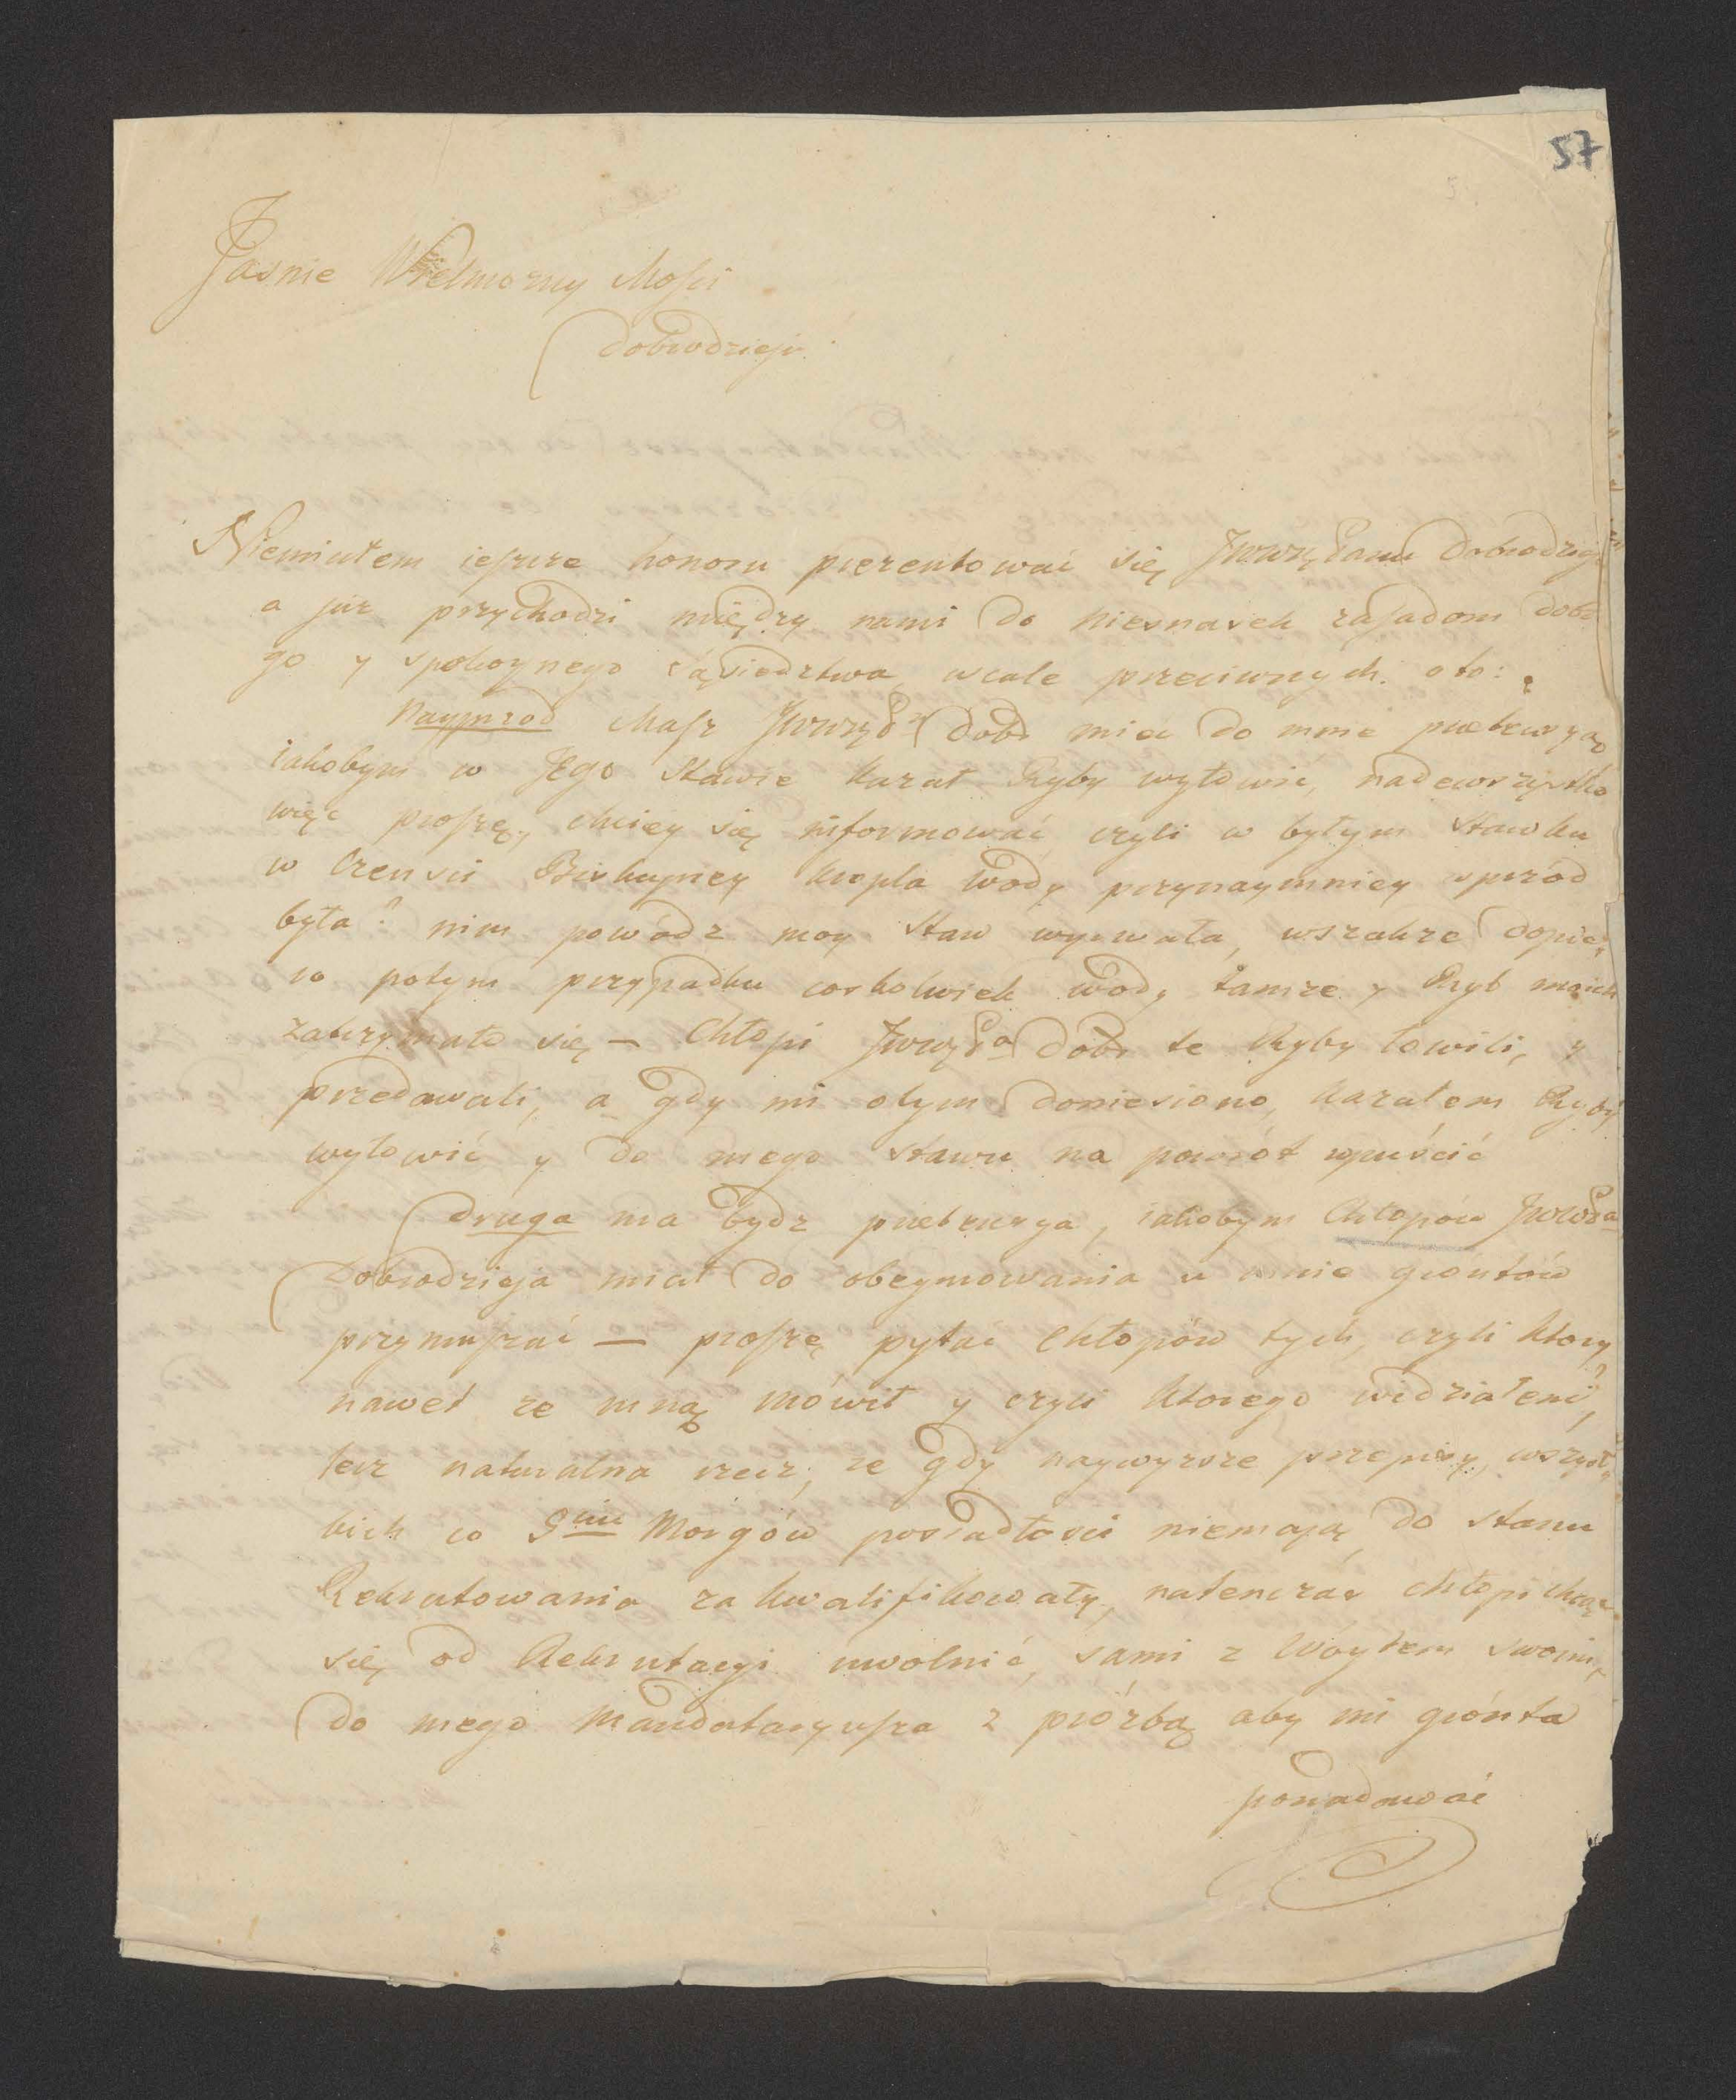 57
Jasnie Wielmożny Mości
Dobrodzieju
Niemiałem ieszcze honoru prezentować się JWW Panu Dobrodziej
a już przychodzi między nami do niesnasek zasadom dobr
go y spokoynego sąsiedztwa wcale przeciwnych. oto:
Nayprzod Masz Dobr mieć do mnie pretensyą
iakobym w Jego Stawie kazał Ryby wyłowić, nadewszystko
więc proszę, chciey się informować czyli w byłym Stawku
w kropla wody przynaymniey wprzód
była? nim powódz moy Staw wyrwała, wszakze dopie,
ro potym przypadku cozkolwiek wody tamze y Ryb moich
zatrzymało się – Chłopi Dobr te Ryby łowili, y
przedawali, a gdy mi otym doniesiono, kazałem Ryby
wyłowić y do mego stawu na powrót wpuścić
Druga ma bydz pretensya, iakobym Chłopów
Dobrodzieja miał do obeymowania u mnie grontów
przymuszać – proszę pytać Chłopów tych, czyli ktory
nawet ze mną mówił y czyli ktorego widziałem?,
lecz naturalna rzecz, ze gdy naywyzsze przepisy, wszyst,
kich co 9ciu Morgów posiadłosci niemaią do stanu
Rekrutowania za kwalifikowały, natenczas chłopi chcąc
się od Rekrutacyi uwolnić, sami z Wóytem swoim,
do mego Mandataryusza z proźbą aby im grónta
ponadawać